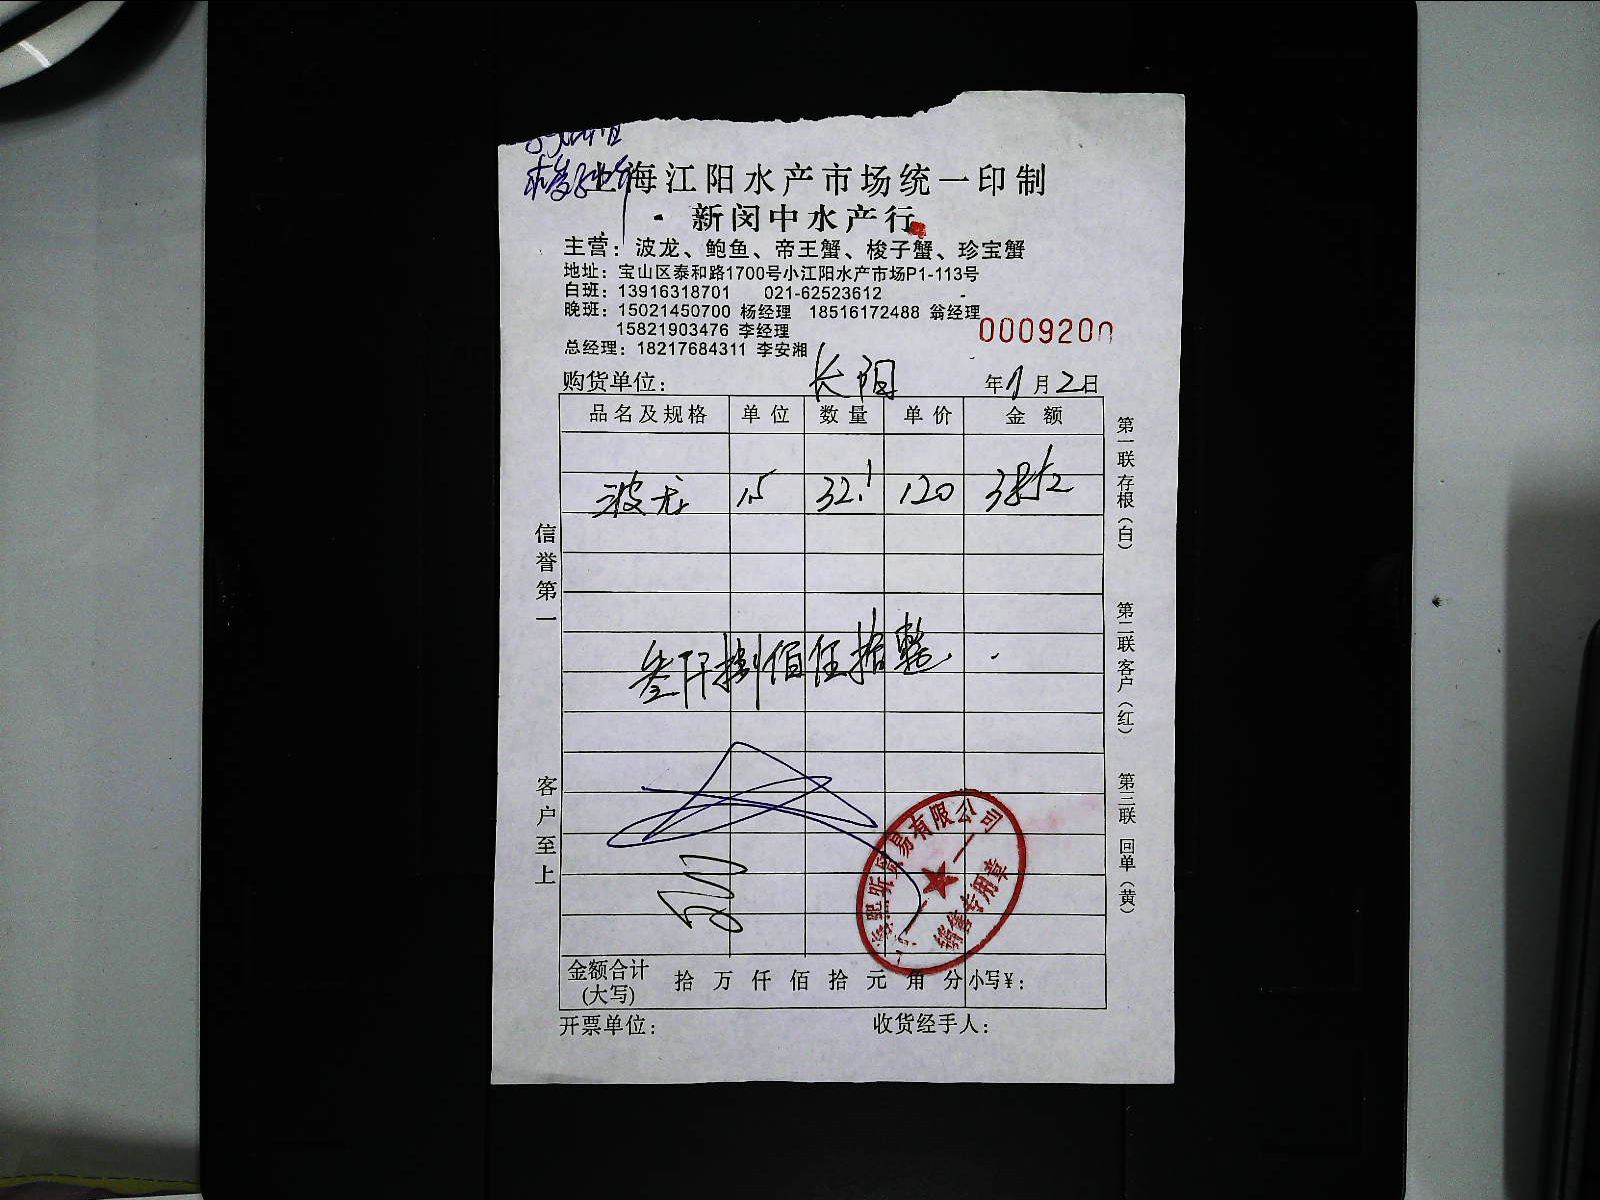 上海江阳水产市场统一印制
新闵中水产行
主营：波龙、鲍鱼、帝王蟹、梭子蟹、珍宝蟹
地址：宝山区泰和路1700号小江阳水产市场P1-113号
白班：13916318701 021-62523612
晚班：15021450700 杨经理 18516172488 翁经理
15821903476 李经理
0009200
总经理：18217684311 李安湘
购货单位： 长阳 年 1 月 2 日
品名及规格 单位 数量 单价 金额
波龙 15 32.1 120 3852
叁仟捌佰伍拾整
金额合计(大写) 拾 万 仟 佰 拾 元 角 分 小写¥：
开票单位： 收货经手人：
信誉第一
客户至上
第一联 存根（白）
第二联 客户（红）
第三联 回单（黄）
贸易有限公司
销售专用章